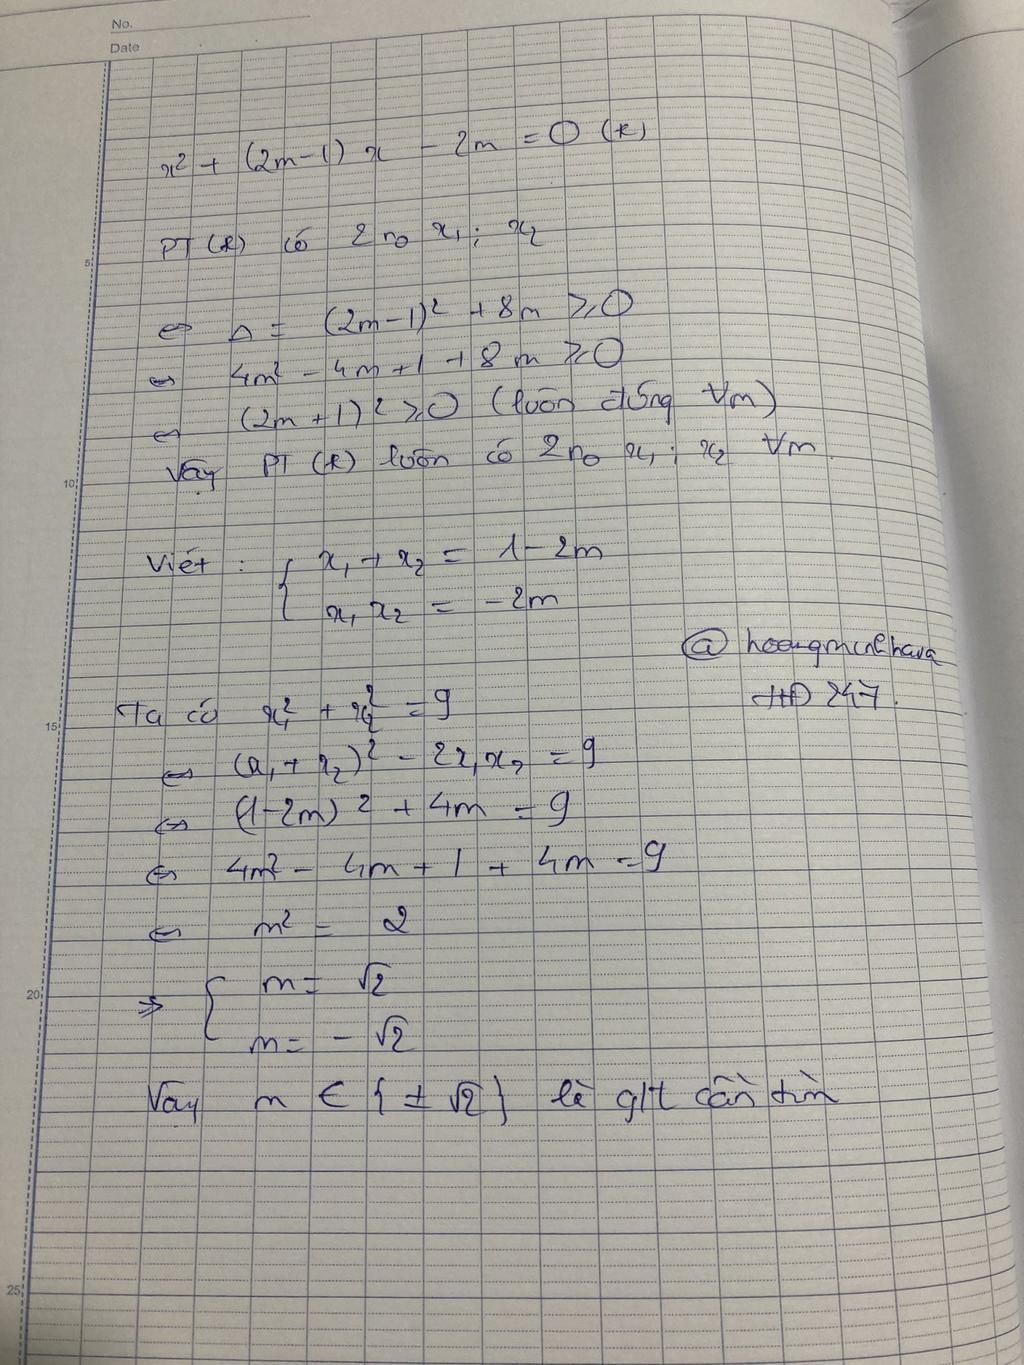 No.
Date
x² + (2m-1) x - 2m = 0 (*)
PT (*) có 2 no x₁ ; x₂
5
⇔ Δ = (2m-1)² + 8m ≥ 0
⇔ 4m² - 4m + 1 + 8m ≥ 0
⇔ (2m+1)² ≥ 0 (luôn đúng ∀m)
Vậy PT (*) luôn có 2 no x₁ ; x₂ ∀m
10
Viét : { x₁ + x₂ = 1 - 2m
x₁ x₂ = -2m
@
HĐ 247.
15
Ta có x₁² + x₂² = 9
⇔ (x₁ + x₂)² - 2x₁x₂ = 9
⇔ (1-2m)² + 4m = 9
⇔ 4m² - 4m + 1 + 4m = 9
⇔ m² = 2
20
⇒ { m = √2
m = - √2
Vậy m ∈ {± √2} là g/t cần tìm
25